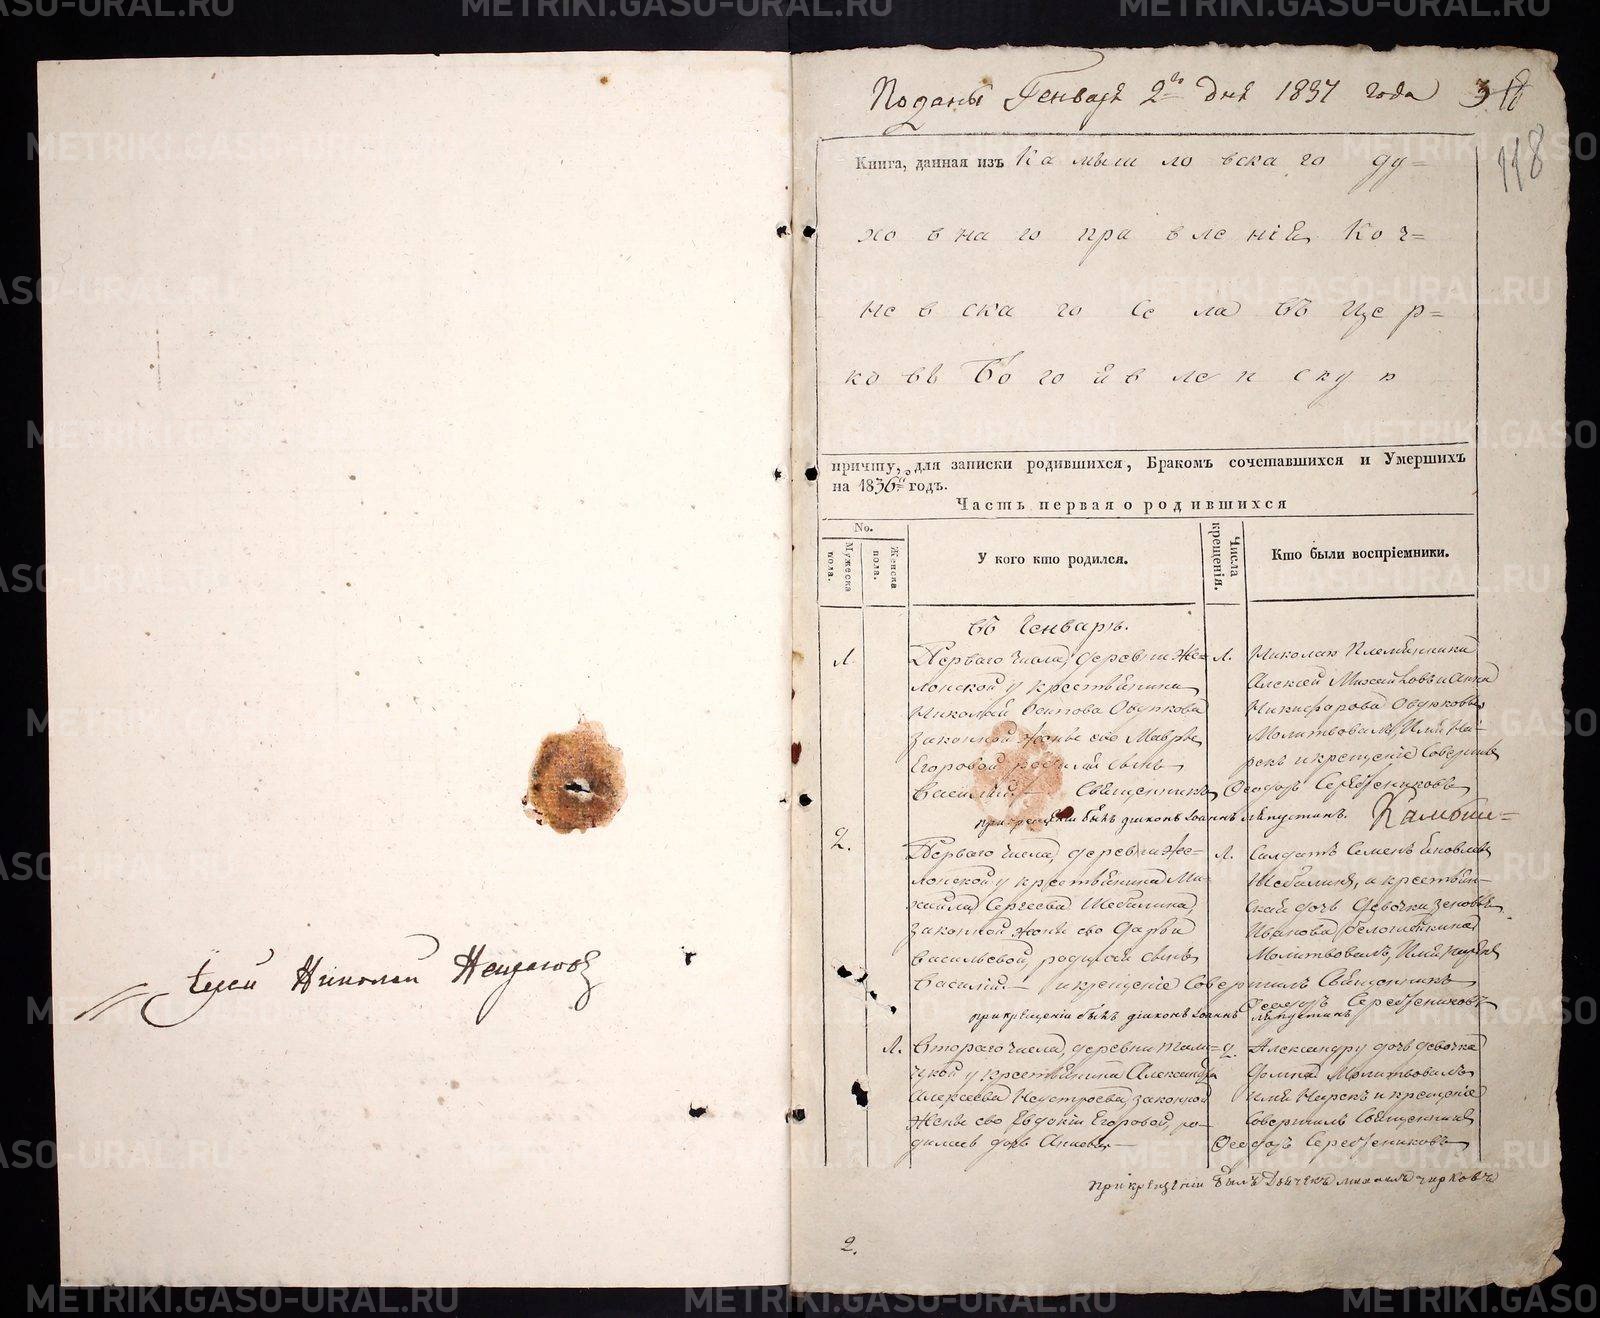 Іерей Николай
Поданы Генваря 2го дня 1837 года
118
Книга, данная изъ Камышловскаго ду=
ховнаго правленія Коч=
невскаго села въ Цер=
ковь Богоявленскую
причту, для записки родившихся, Бракомъ сочетавшихся и Умершихъ
на 1836й годъ.
Часть первая о родившихся
No.
Мужеска пола.
Женска пола.
У кого кто родился.
Числа крещенія.
Кто были воспріемники.
въ Генварѣ.
1.
Перваго числа, деревни Же=
лонской у крестьянина
Николая Осипова
законной жены его Мавры
Егоровой родился сынъ
Василій.
1.
Николая племянники
Алексей Михайловъ и Анна
Никифорова
Молитвовалъ, Имя На=
рекъ и крещеніе Совершилъ
Священникъ Ѳеодоръ Серебренниковъ
при крещеніи былъ діаконъ Іоаннъ Лѣпустинъ.
Камыш=
2.
Перваго числа, деревни Же=
лонской у крестьянина Ми=
хайла Сергеева Шебалина,
законной жены его Дарьи
Васильевой, родился сынъ
Василій.
1.
Солдатъ Семенъ Яковлевъ
Шебалинъ, и крестьян=
ская дочь девочка
Иванова
Молитвовалъ, Имя нарекъ
и крещеніе Совершилъ Священникъ
Ѳеодоръ Серебренниковъ
при крещеніи былъ діаконъ Іоаннъ Лѣпустинъ
1.
Втораго числа, деревни
у крестьянина Александра
Алексеева Неустроева законной
жены его Евдокіи Егоровой, ро=
дилась дочь
2.
Александру дочь девочка
Домна Молитвовалъ
имя Нарекъ и крещеніе
Совершилъ Священникъ
Ѳеодоръ Серебренниковъ
При крещеніи былъ Дьячекъ Михаилъ Чирковъ
2.
METRIKI.GASO-URAL.RU